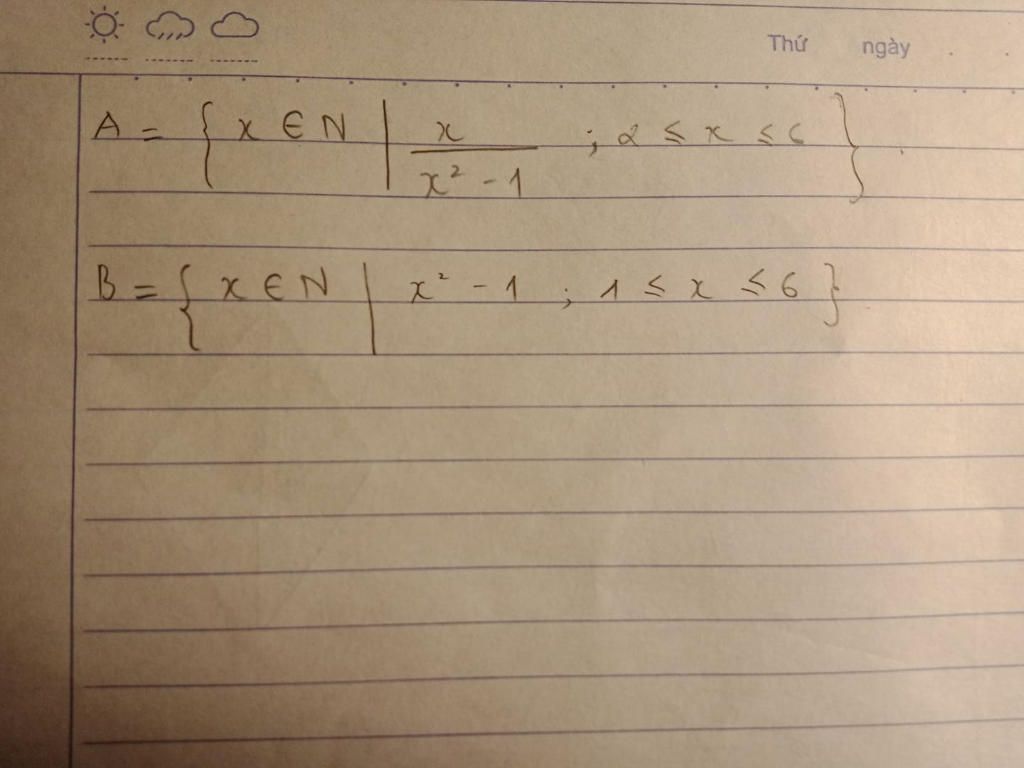 Thứ ngày . .
A = { x ∈ N | x / (x² - 1) ; 2 ≤ x ≤ 6 }
B = { x ∈ N | x² - 1 ; 1 ≤ x ≤ 6 }